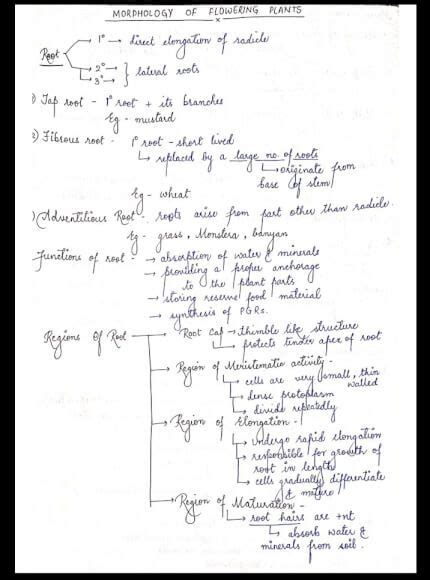 MORPHOLOGY OF FLOWERING PLANTS
Root → 1° → direct elongation of radicle
→ 2° →
→ 3° → } lateral roots
1) Tap root - 1° root + its branches
Eg - mustard
2) Fibrous root - 1° root - short lived
↳ replaced by a large no. of roots
↳ originate from
base of stem
Eg - wheat
) Adventitious Root - roots arise from part other than radicle.
Eg - grass, Monstera, banyan
Functions of root - → absorption of water & minerals
→ providing a proper anchorage
to the plant parts
→ storing reserve food material
→ synthesis of PGRs.
Regions Of Root → Root Cap → Thimble like structure
↳ protects tender apex of root
→ Region of Meristematic activity -
→ cells are very small, thin
walled
→ dense protoplasm
→ divide repeatedly
→ Region of Elongation -
→ undergo rapid elongation
→ responsible for growth of
root in length
→ cells gradually differentiate
& mature
→ Region of Maturation -
↳ root hairs are +nt
↳ absorb water &
minerals from soil.